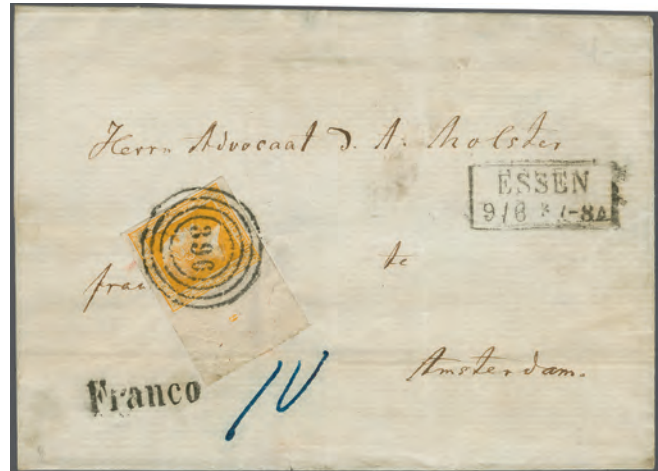 Herrn Advocaat D. A. Molster
ESSEN
9/6 * 7-8
390
te
Amsterdam.
Franco